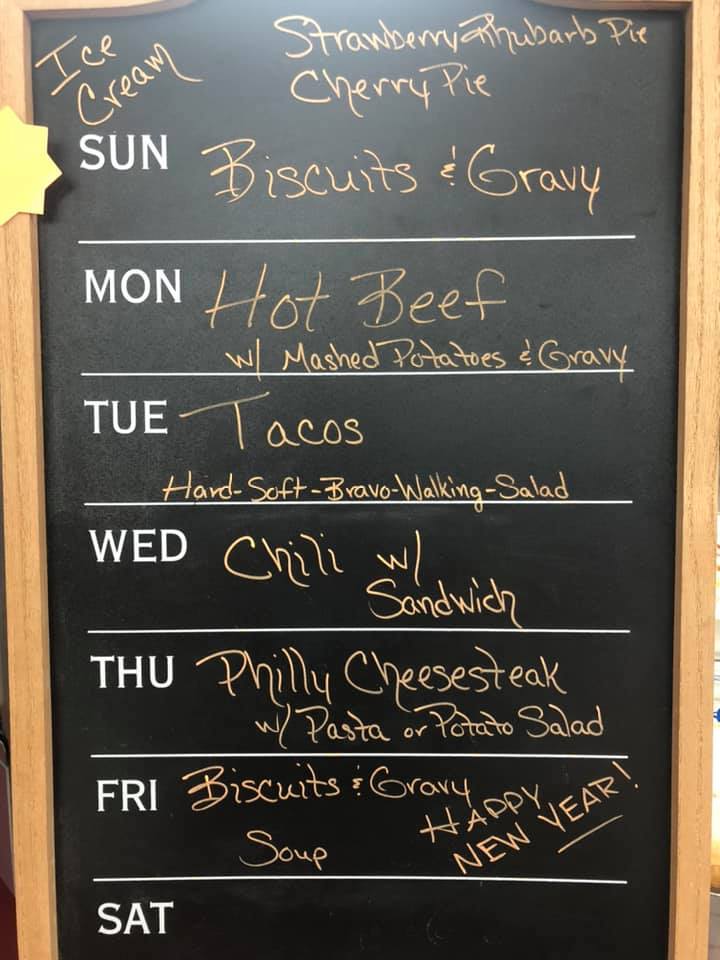 Ice Cream
Strawberry Rhubarb Pie
Cherry Pie
SUN Biscuits & Gravy
MON Hot Beef
w/ Mashed Potatoes & Gravy
TUE Tacos
Hard-Soft-Bravo-Walking-Salad
WED Chili w/
Sandwich
THU Philly Cheesesteak
w/ Pasta or Potato Salad
FRI Biscuits & Gravy
Soup
HAPPY
NEW YEAR!
SAT